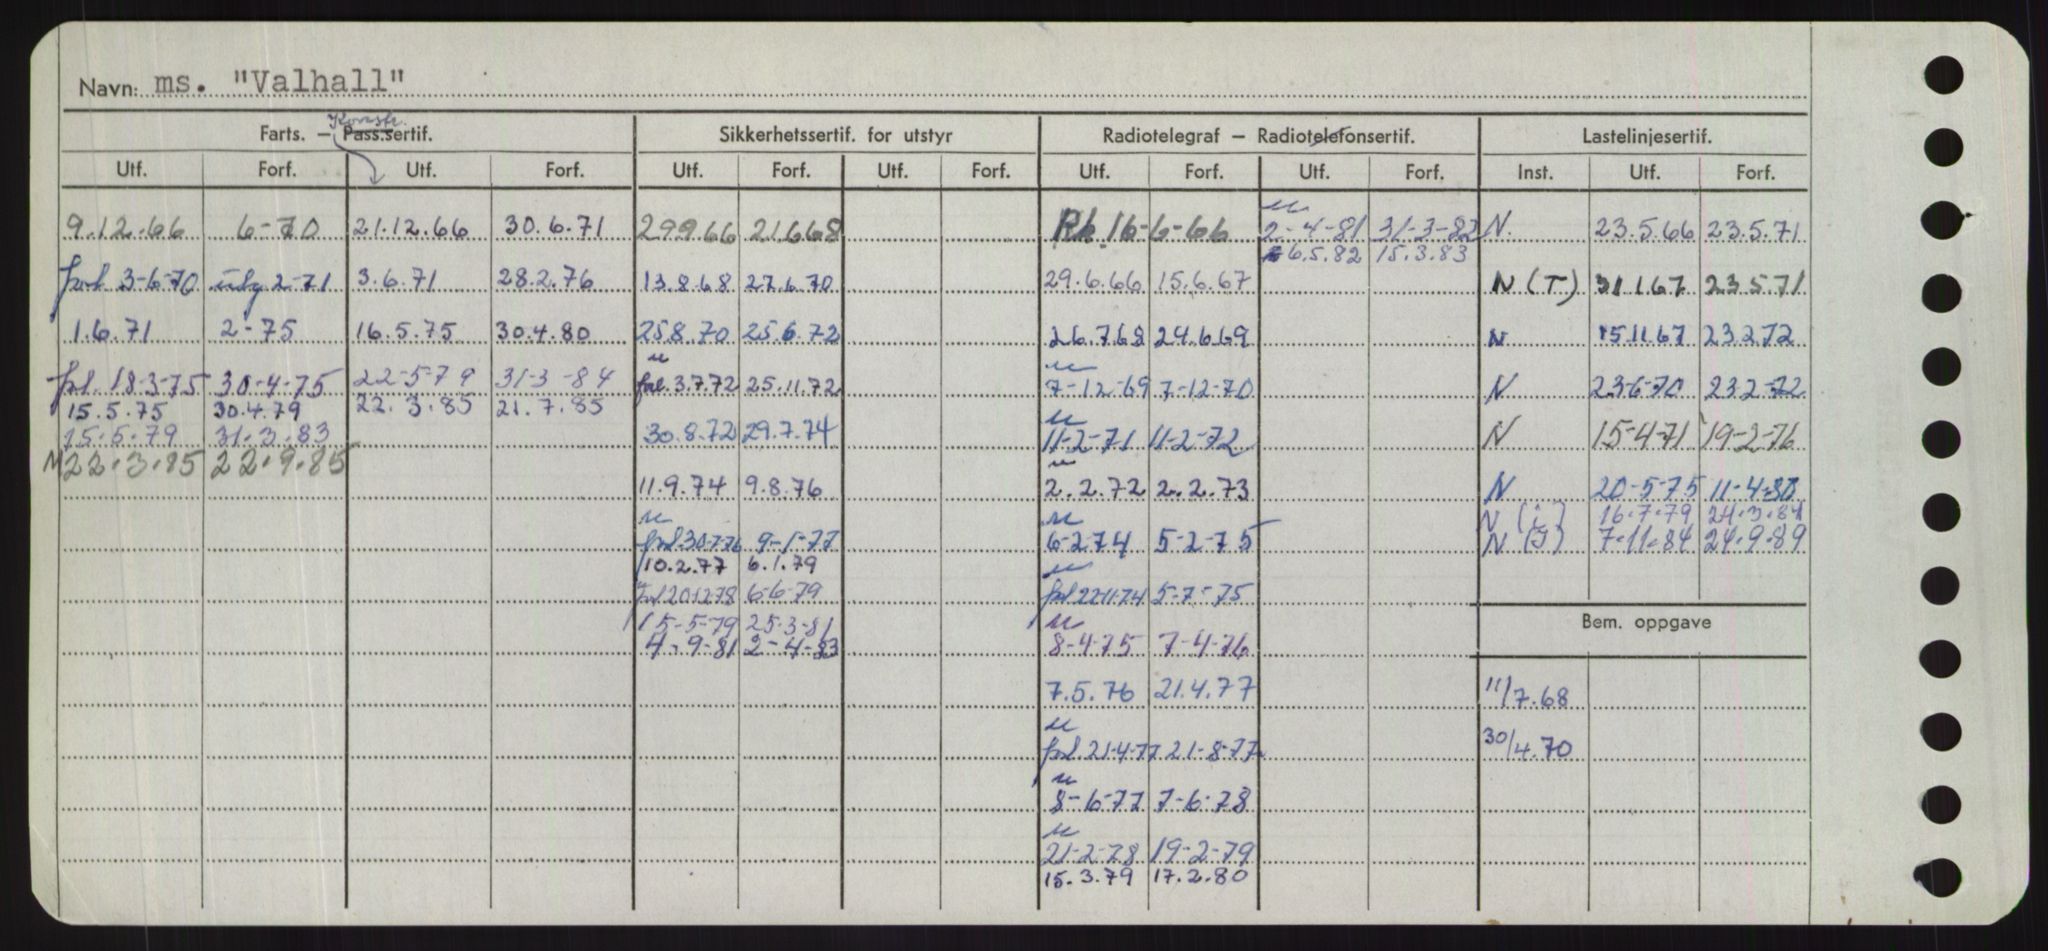 Navn: ms. "Valhall"
Konstr.
Farts. — Pass.sertif. Sikkerhetssertif. for utstyr Radiotelegraf — Radiotelefonsertif. Lastelinjesertif.
Utf. Forf. Utf. Forf. Utf. Forf. Utf. Forf. Utf. Forf. Utf. Forf. Inst. Utf. Forf.
9.12.66 6-70 21.12.66 30.6.71 29.9.66 21.6.68 Rk. 16-6-66 2-4-81 31-3-82 N. 23.5.66 23.5.71
6.5.82 15.3.83
forl 3-6-70 2-71 3.6.71 28.2.76 13.8.68 27.6.70 29.6.66 15.6.67 N (T) 31.1.67 23.5.71
1.6.71 2-75 16.5.75 30.4.80 25.8.70 25.6.72 26.7.68 24.6.69 N 15.11.67 23.2.72
forl. 18-3-75 30-4-75 22-5-79 31-3-84 forl. 3.7.72 25.11.72 7-12-69 7-12-70 N 23-6-70 23.2-72
15.5.75 30.4.79 22.3.85 21.7.85
15-5-79 31-3-83 30.8.72 29.7.74 11-2-71 11-2-72 N 15-4-71 19-2-76
M 22.3.85 22.9.85
11.9.74 9.8.76 2.2.72 2.2.73 N 20-5-75 11-4-80
N (i) 16.7.79 24.3.84
forl 30-7-76 9-1-77 6-2-74 5-2-75 N (I) 7-11-84 24-9-89
10.2.77 6.1.79
forl 20.12.78 6-6-79 forl 22-11-74 5-7-75
15-5-79 25.3-81 Bem. oppgave
4-9-81 2-4-83 8-4-75 7-4-76
7.5.76 21.4.77 11/7.68
forl. 21-4-77 21-8-77 30/4.70
8-6-77 7-6-78
21-2-78 19-2-79
15.3.79 17.2.80